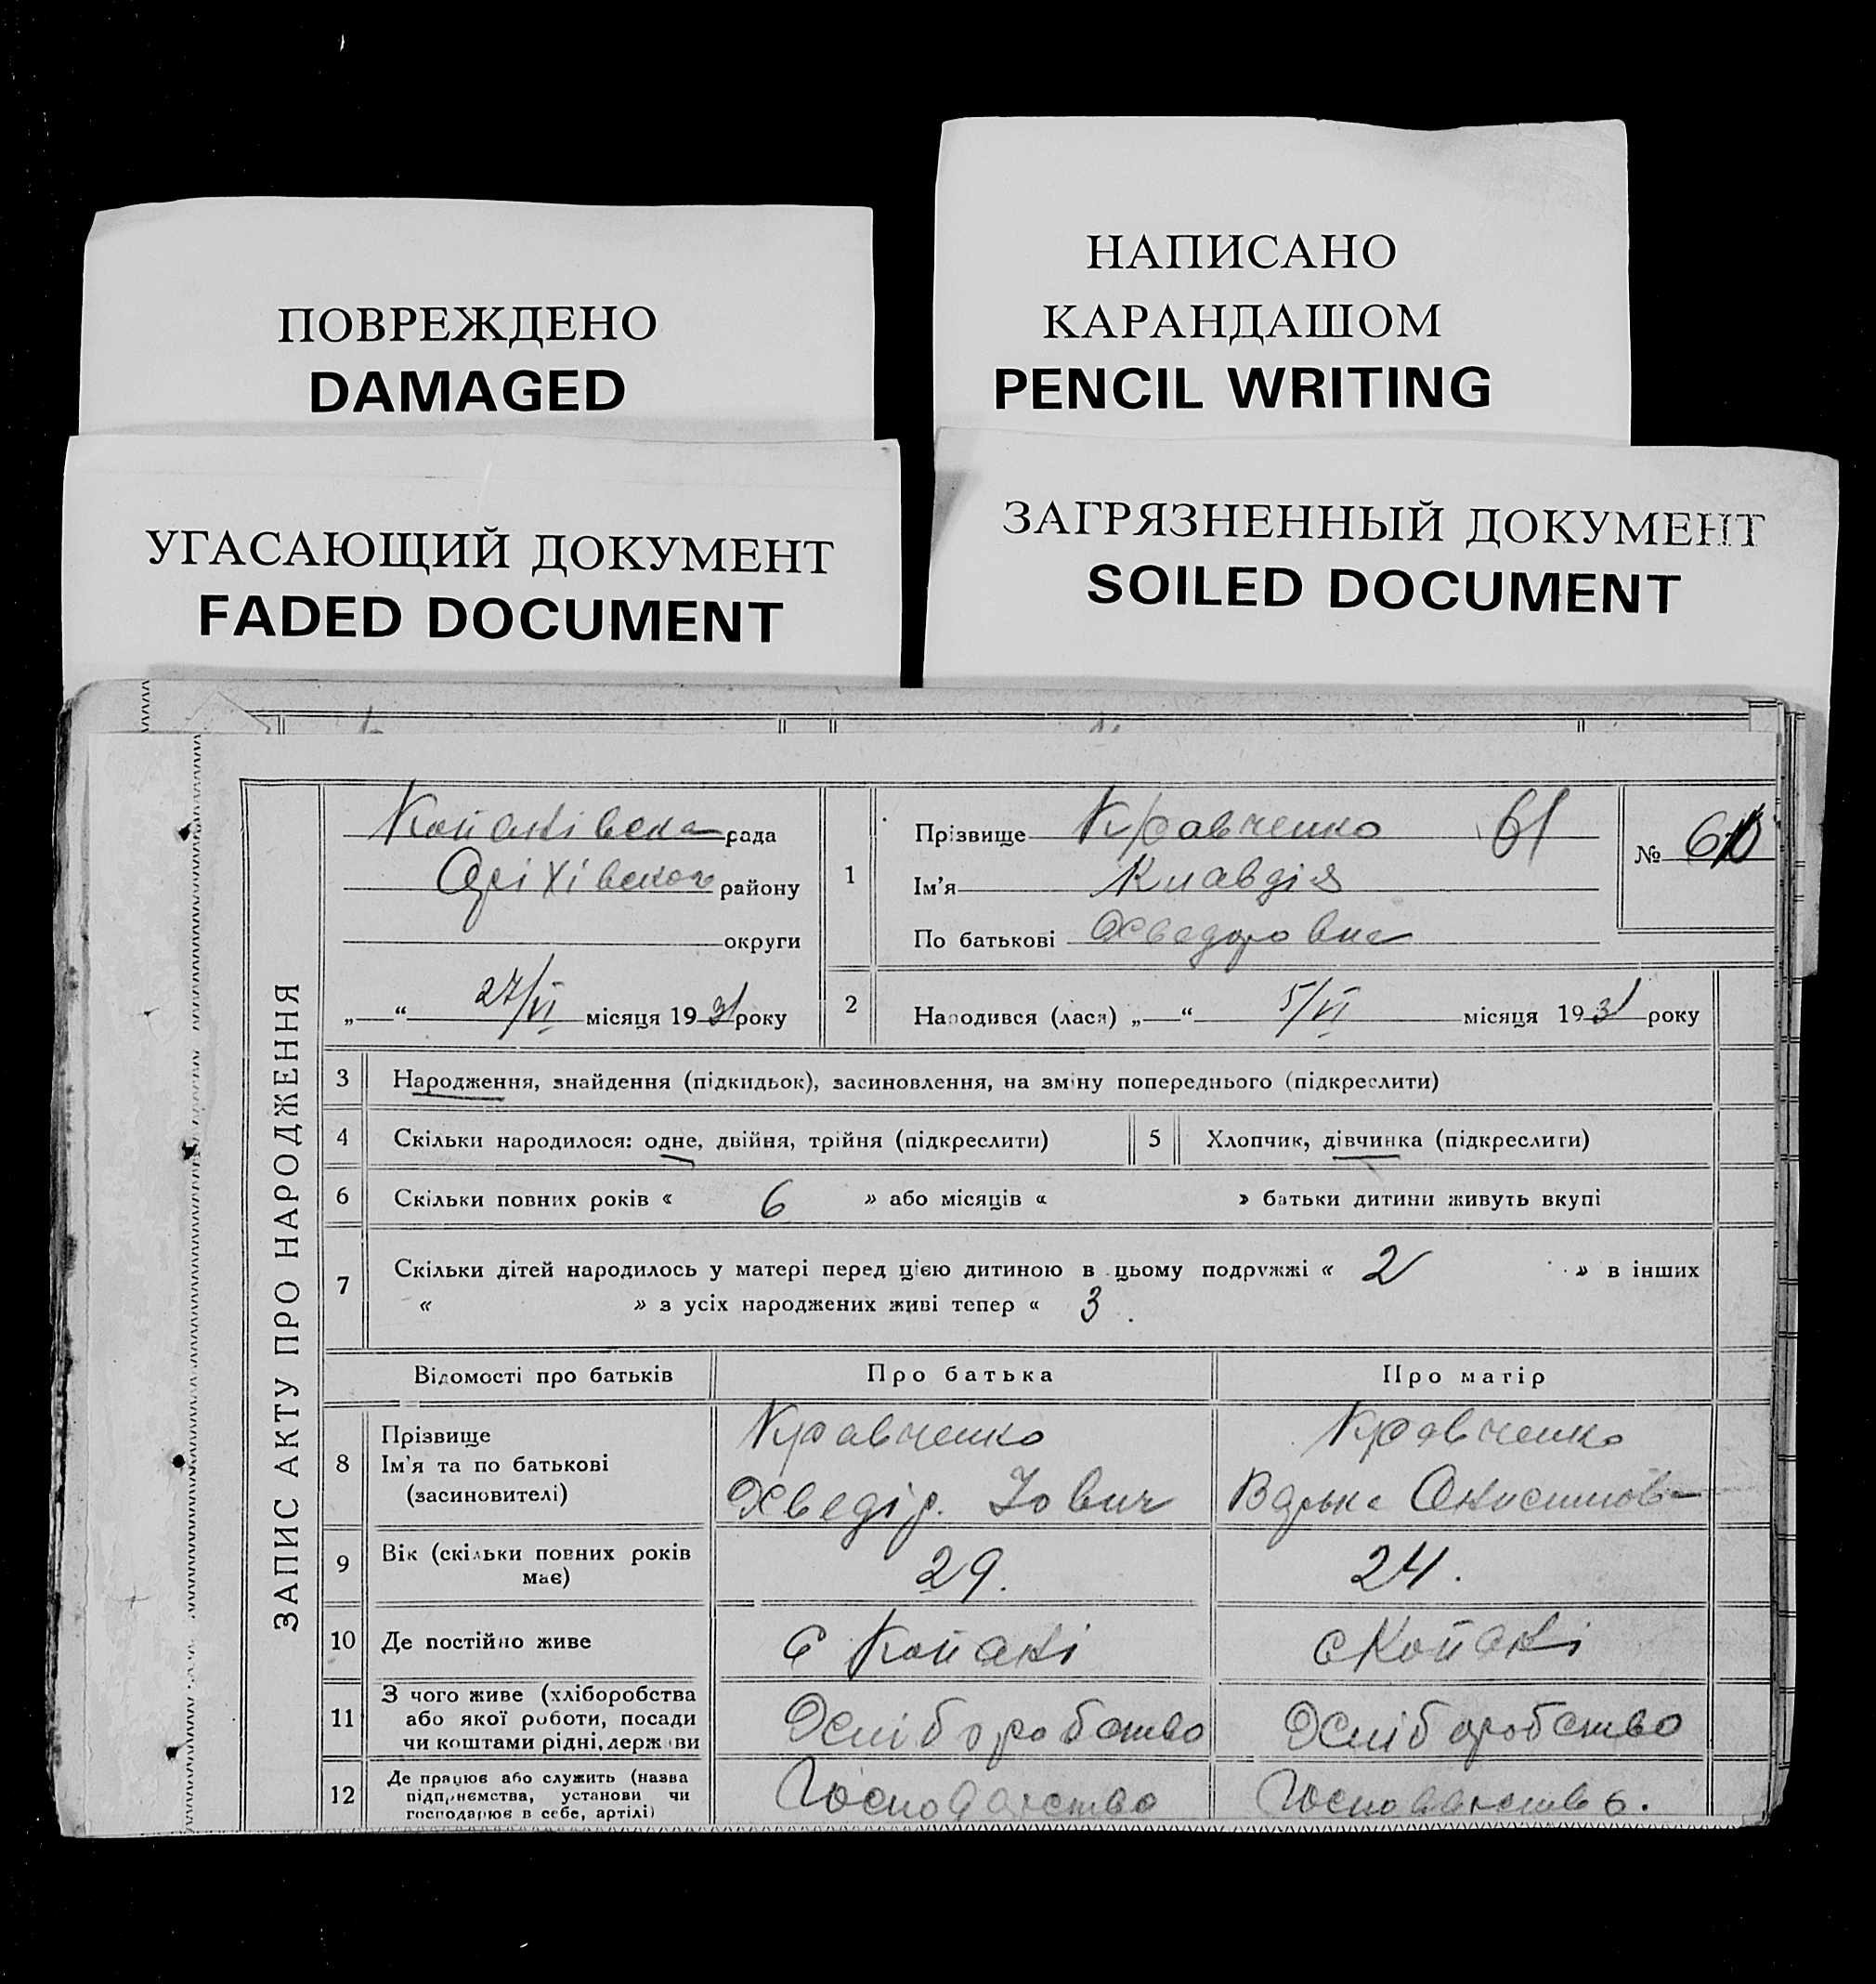 ПОВРЕЖДЕНО
DAMAGED
НАПИСАНО
КАРАНДАШОМ
PENCIL WRITING
УГАСАЮЩИЙ ДОКУМЕНТ
FADED DOCUMENT
ЗАГРЯЗНЕННЫЙ ДОКУМЕНТ
SOILED DOCUMENT
ЗАПИС АКТУ ПРО НАРОДЖЕННЯ
рада
Оріхівського району
округи
„ “ 27/VI місяця 1931 року
1
Прізвище Кравченко 61
Ім'я Клавдія
По батькові Хведоровна
№
2 Народився (лася) „ “ 5/VI місяця 1931 року
3 Народження, знайдення (підкидьок), засиновлення, на зміну попереднього (підкреслити)
4 Скільки народилося: одне, двійня, трійня (підкреслити)
5 Хлопчик, дівчинка (підкреслити)
6 Скільки повних років « 6 » або місяців « » батьки дитини живуть вкупі
7 Скільки дітей народилось у матері перед цією дитиною в цьому подружжі « 2 » в інших
« » з усіх народжених живі тепер « 3.
Відомості про батьків Про батька Про матір
8 Прізвище
Ім'я та по батькові
(засиновителі)
Кравченко
Хведір. Йович
Кравченко
9 Вік (скільки повних років
має)
29.
24.
10 Де постійно живе
11 З чого живе (хліборобства
або якої роботи, посади
чи коштами рідні, держави
Хліборобство
Хліборобство
12 Де працює або служить (назва
підприємства, установи чи
господарює в себе, артілі)
Господарство
Господарство.